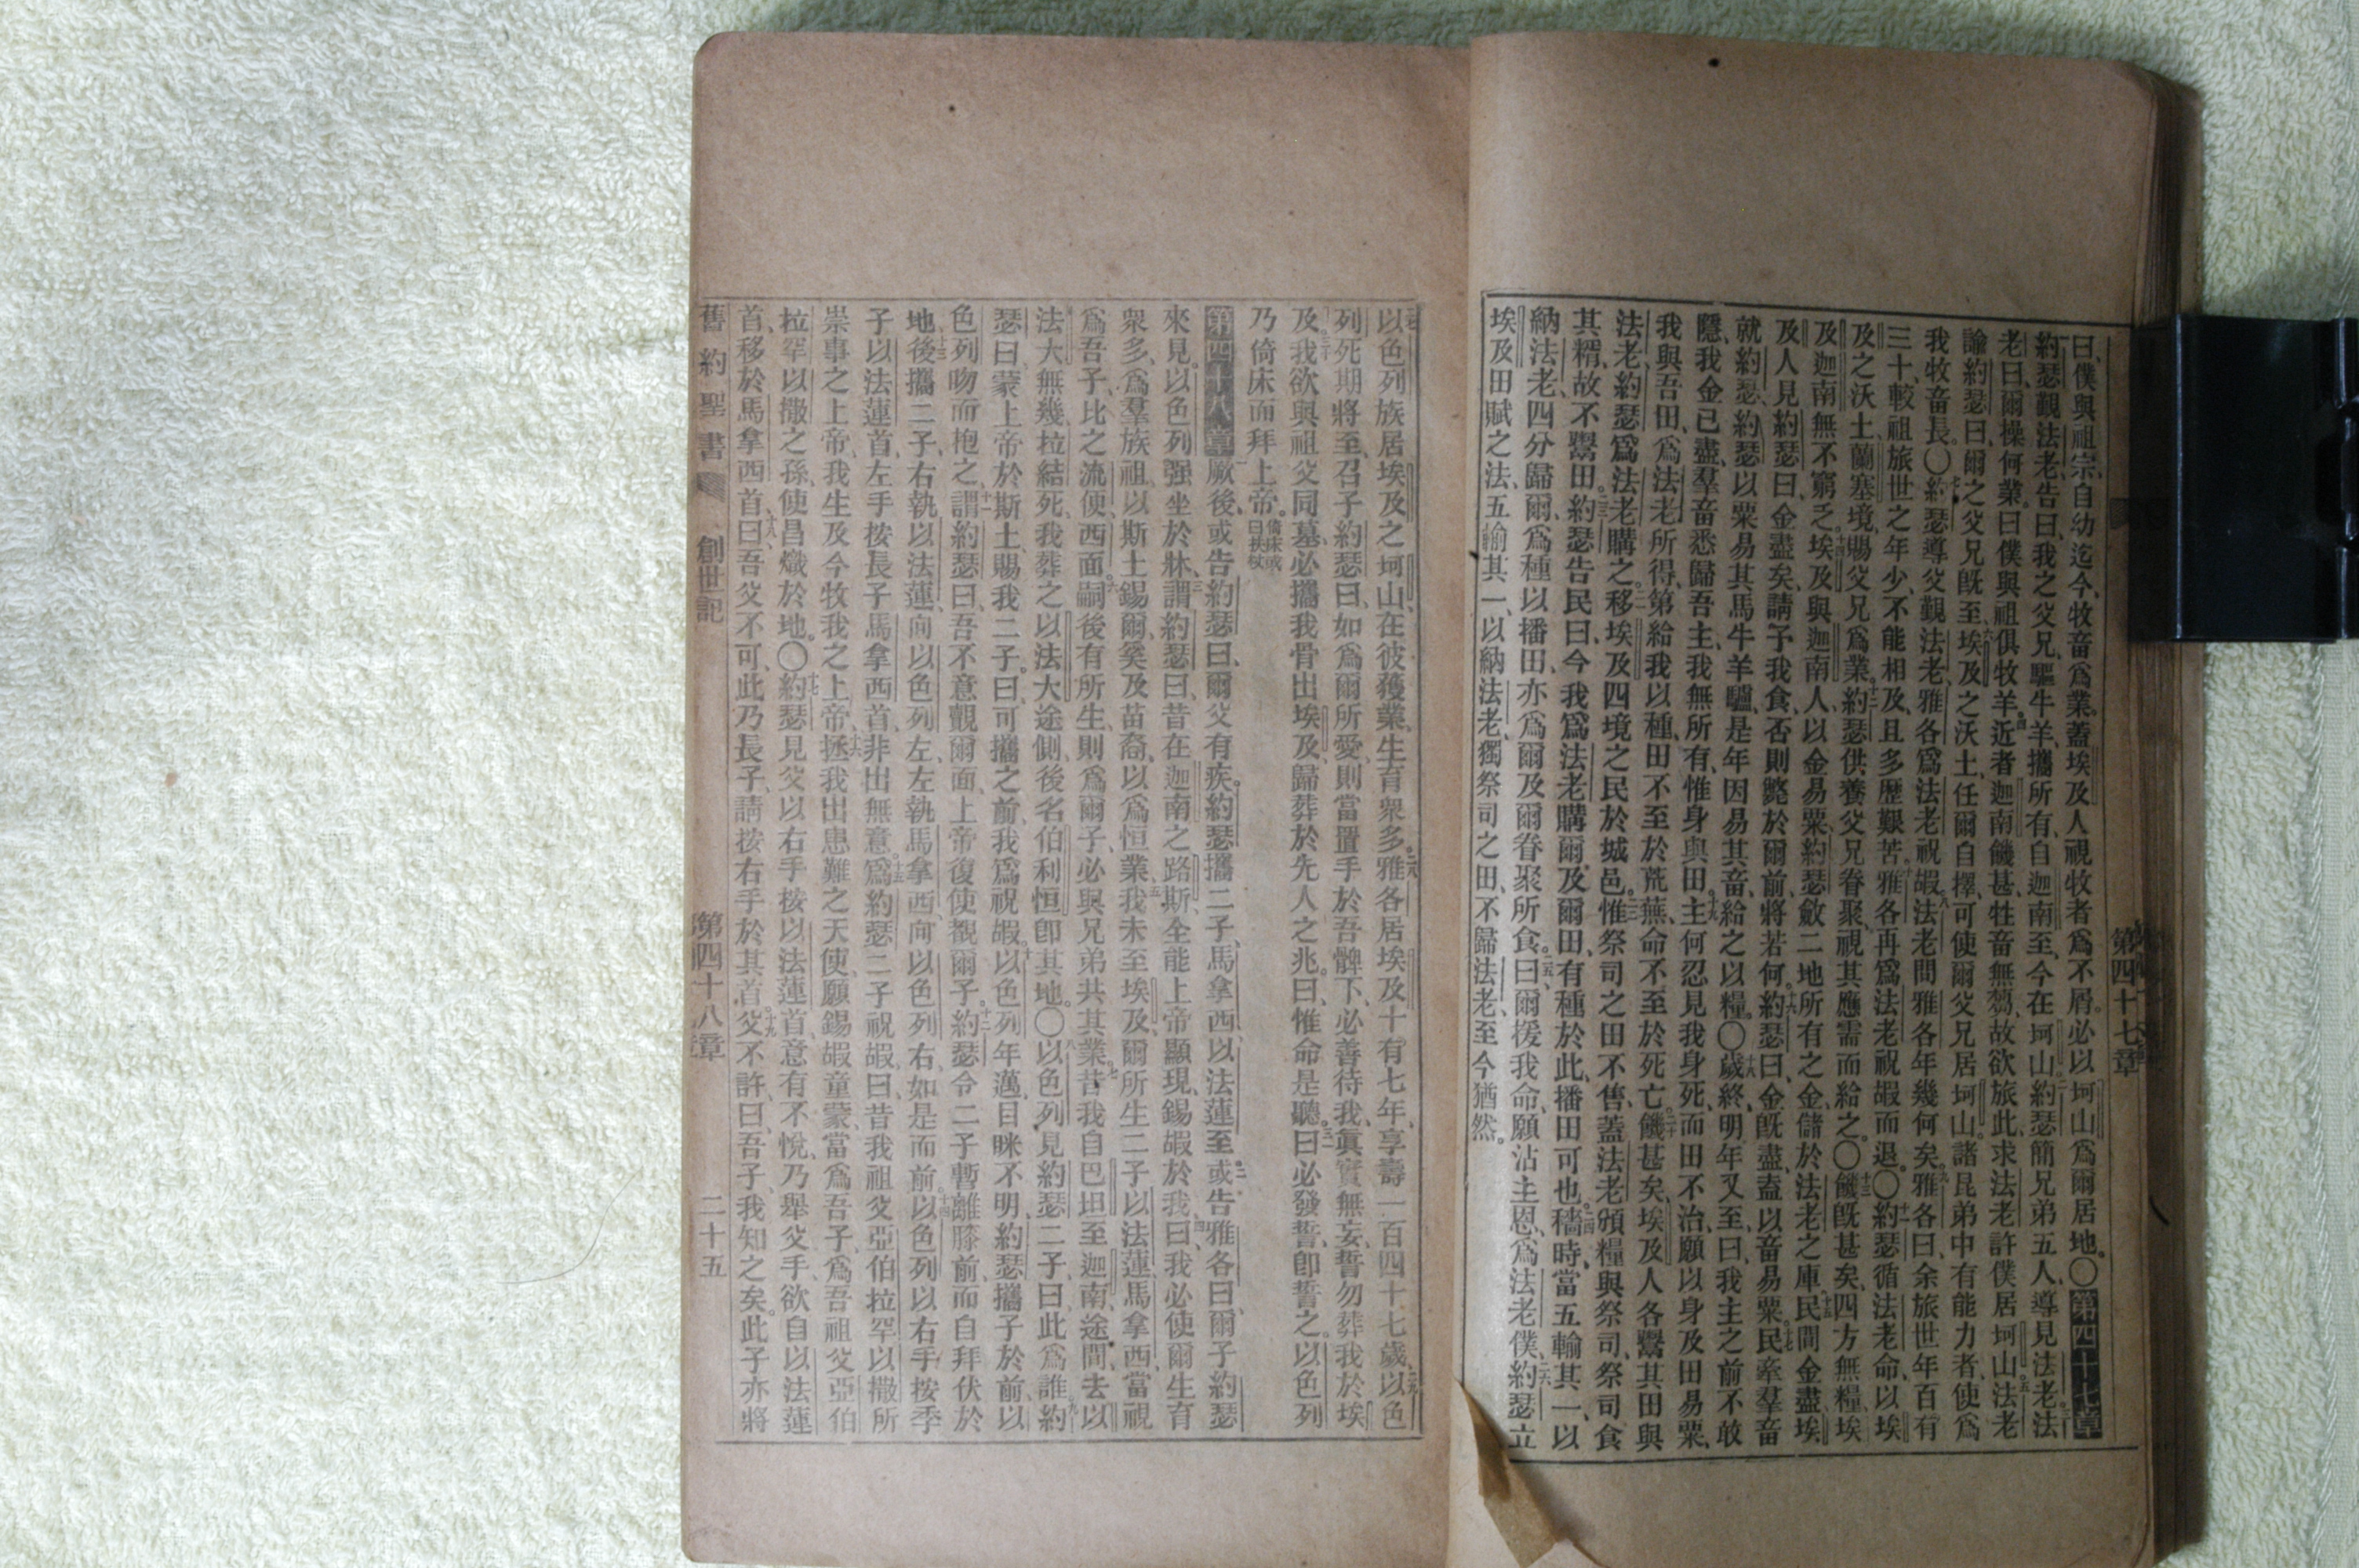 曰、僕與祖宗、自幼迄今、牧畜爲業、蓋埃及人視牧者爲不屑、必以坷山爲爾居地。〇第四十七章
約瑟覲法老、告曰、我之父兄、驅牛羊、攜所有、自迦南至、今在坷山、二約瑟簡兄弟五人、導見法老。三法
老曰、爾操何業、曰、僕與祖俱牧羊、四近者迦南饑甚、牲畜無芻、故欲旅此、求法老許僕居坷山。五法老
諭約瑟曰、爾之父兄旣至、六埃及之沃土、任爾自擇、可使爾父兄居坷山。諸昆弟中有能力者、使爲
我牧畜長。〇七約瑟導父覲法老、雅各爲法老祝嘏、八法老問雅各年幾何矣。九雅各曰、余旅世年百有
三十、較祖旅世之年少、不能相及、且多歷艱苦、十雅各再爲法老祝嘏而退。〇十一約瑟循法老命、以埃
及之沃土、蘭塞境、賜父兄爲業、十二約瑟供養父兄眷聚、視其應需而給之。〇十三饑旣甚矣、四方無糧、埃
及迦南、無不窮乏、十四埃及與迦南人、以金易粟、約瑟斂二地所有之金、儲於法老之庫、十五民間金盡、埃
及人見約瑟曰、金盡矣、請予我食、否則斃於爾前、將若何。十六約瑟曰、金旣盡、盍以畜易粟。十七民牽羣畜
就約瑟、約瑟以粟易其馬牛羊驢、是年因易其畜、給之以糧。〇十八歲終、明年又至、曰、我主之前、不敢
隱、我金已盡、羣畜悉歸吾主、我無所有、惟身與田。十九主何忍見我身死、而田不治、願以身及田易粟、
我與吾田、爲法老所得、第給我以種、田不至於荒蕪、命不至於死亡。二十饑甚矣、埃及人各鬻其田與
法老、約瑟爲法老購之。二一移埃及四境之民於城邑。二二惟祭司之田不售、蓋法老頒糧與祭司、祭司食
其糈、故不鬻田。二三約瑟告民曰、今我爲法老購爾、及爾田、有種於此、播田可也。二四穡時、當五輸其一、以
納法老、四分歸爾、爲種以播田、亦爲爾及爾眷聚所食。二五曰、爾援我命、願沾主恩、爲法老僕、二六約瑟立
埃及田賦之法、五輸其一、以納法老、獨祭司之田、不歸法老、至今猶然。
第四十七章
以色列族居埃及之坷山、在彼獲業、生育衆多。二八雅各居埃及十有七年、享壽一百四十七歲、二九以色
列死期將至、召子約瑟曰、如爲爾所愛、則當置手於吾髀下、必善待我、眞實無妄、誓勿葬我於埃
及、三十我欲與祖父同墓、必攜我骨出埃及、歸葬於先人之兆。曰、惟命是聽。三一曰、必發誓、卽誓之。以色列
乃倚床而拜上帝。倚床或曰扶杖
第四十八章厥後、或告約瑟曰、爾父有疾。約瑟攜二子、馬拿西、以法蓮至。二或告雅各曰、爾子約瑟
來見。以色列强坐於牀、三謂約瑟曰、昔在迦南之路斯、全能上帝顯現、錫嘏於我、四曰、我必使爾生育
衆多、爲羣族祖、以斯土錫爾、爰及苗裔、以爲恒業、五我未至埃及、爾所生二子、以法蓮馬拿西、當視
爲吾子、比之流便、西面。六嗣後有所生、則爲爾子、必與兄弟共其業。七昔我自巴坦至迦南、途間、去以
法大無幾、拉結死、我葬之以法大途側、後名伯利恒、卽其地。〇八以色列見約瑟二子曰、此爲誰、九約
瑟曰、蒙上帝於斯土、賜我二子。曰、可攜之前、我爲祝嘏。十以色列年邁、目眯不明、約瑟攜子於前、以
色列吻而抱之、十一謂約瑟曰、吾不意觀爾面、上帝復使觀爾子。十二約瑟令二子暫離膝前、而自拜伏於
地、十三後攜二子、右執以法蓮、向以色列左、左執馬拿西、向以色列右、如是而前。十四以色列以右手按季
子以法蓮首、左手按長子馬拿西首、非出無意。十五爲約瑟二子祝嘏曰、昔我祖父亞伯拉罕、以撒所
崇事之上帝、我生及今牧我之上帝、十六拯我出患難之天使、願錫嘏童蒙、當爲吾子、爲吾祖父亞伯
拉罕、以撒之孫、使昌熾於地。〇十七約瑟見父以右手按以法蓮首、意有不悅、乃舉父手、欲自以法蓮
首、移於馬拿西首、十八曰、吾父不可、此乃長子、請按右手於其首。十九父不許、曰、吾子、我知之矣。此子亦將
舊約聖書 創世記 第四十八章 二十五